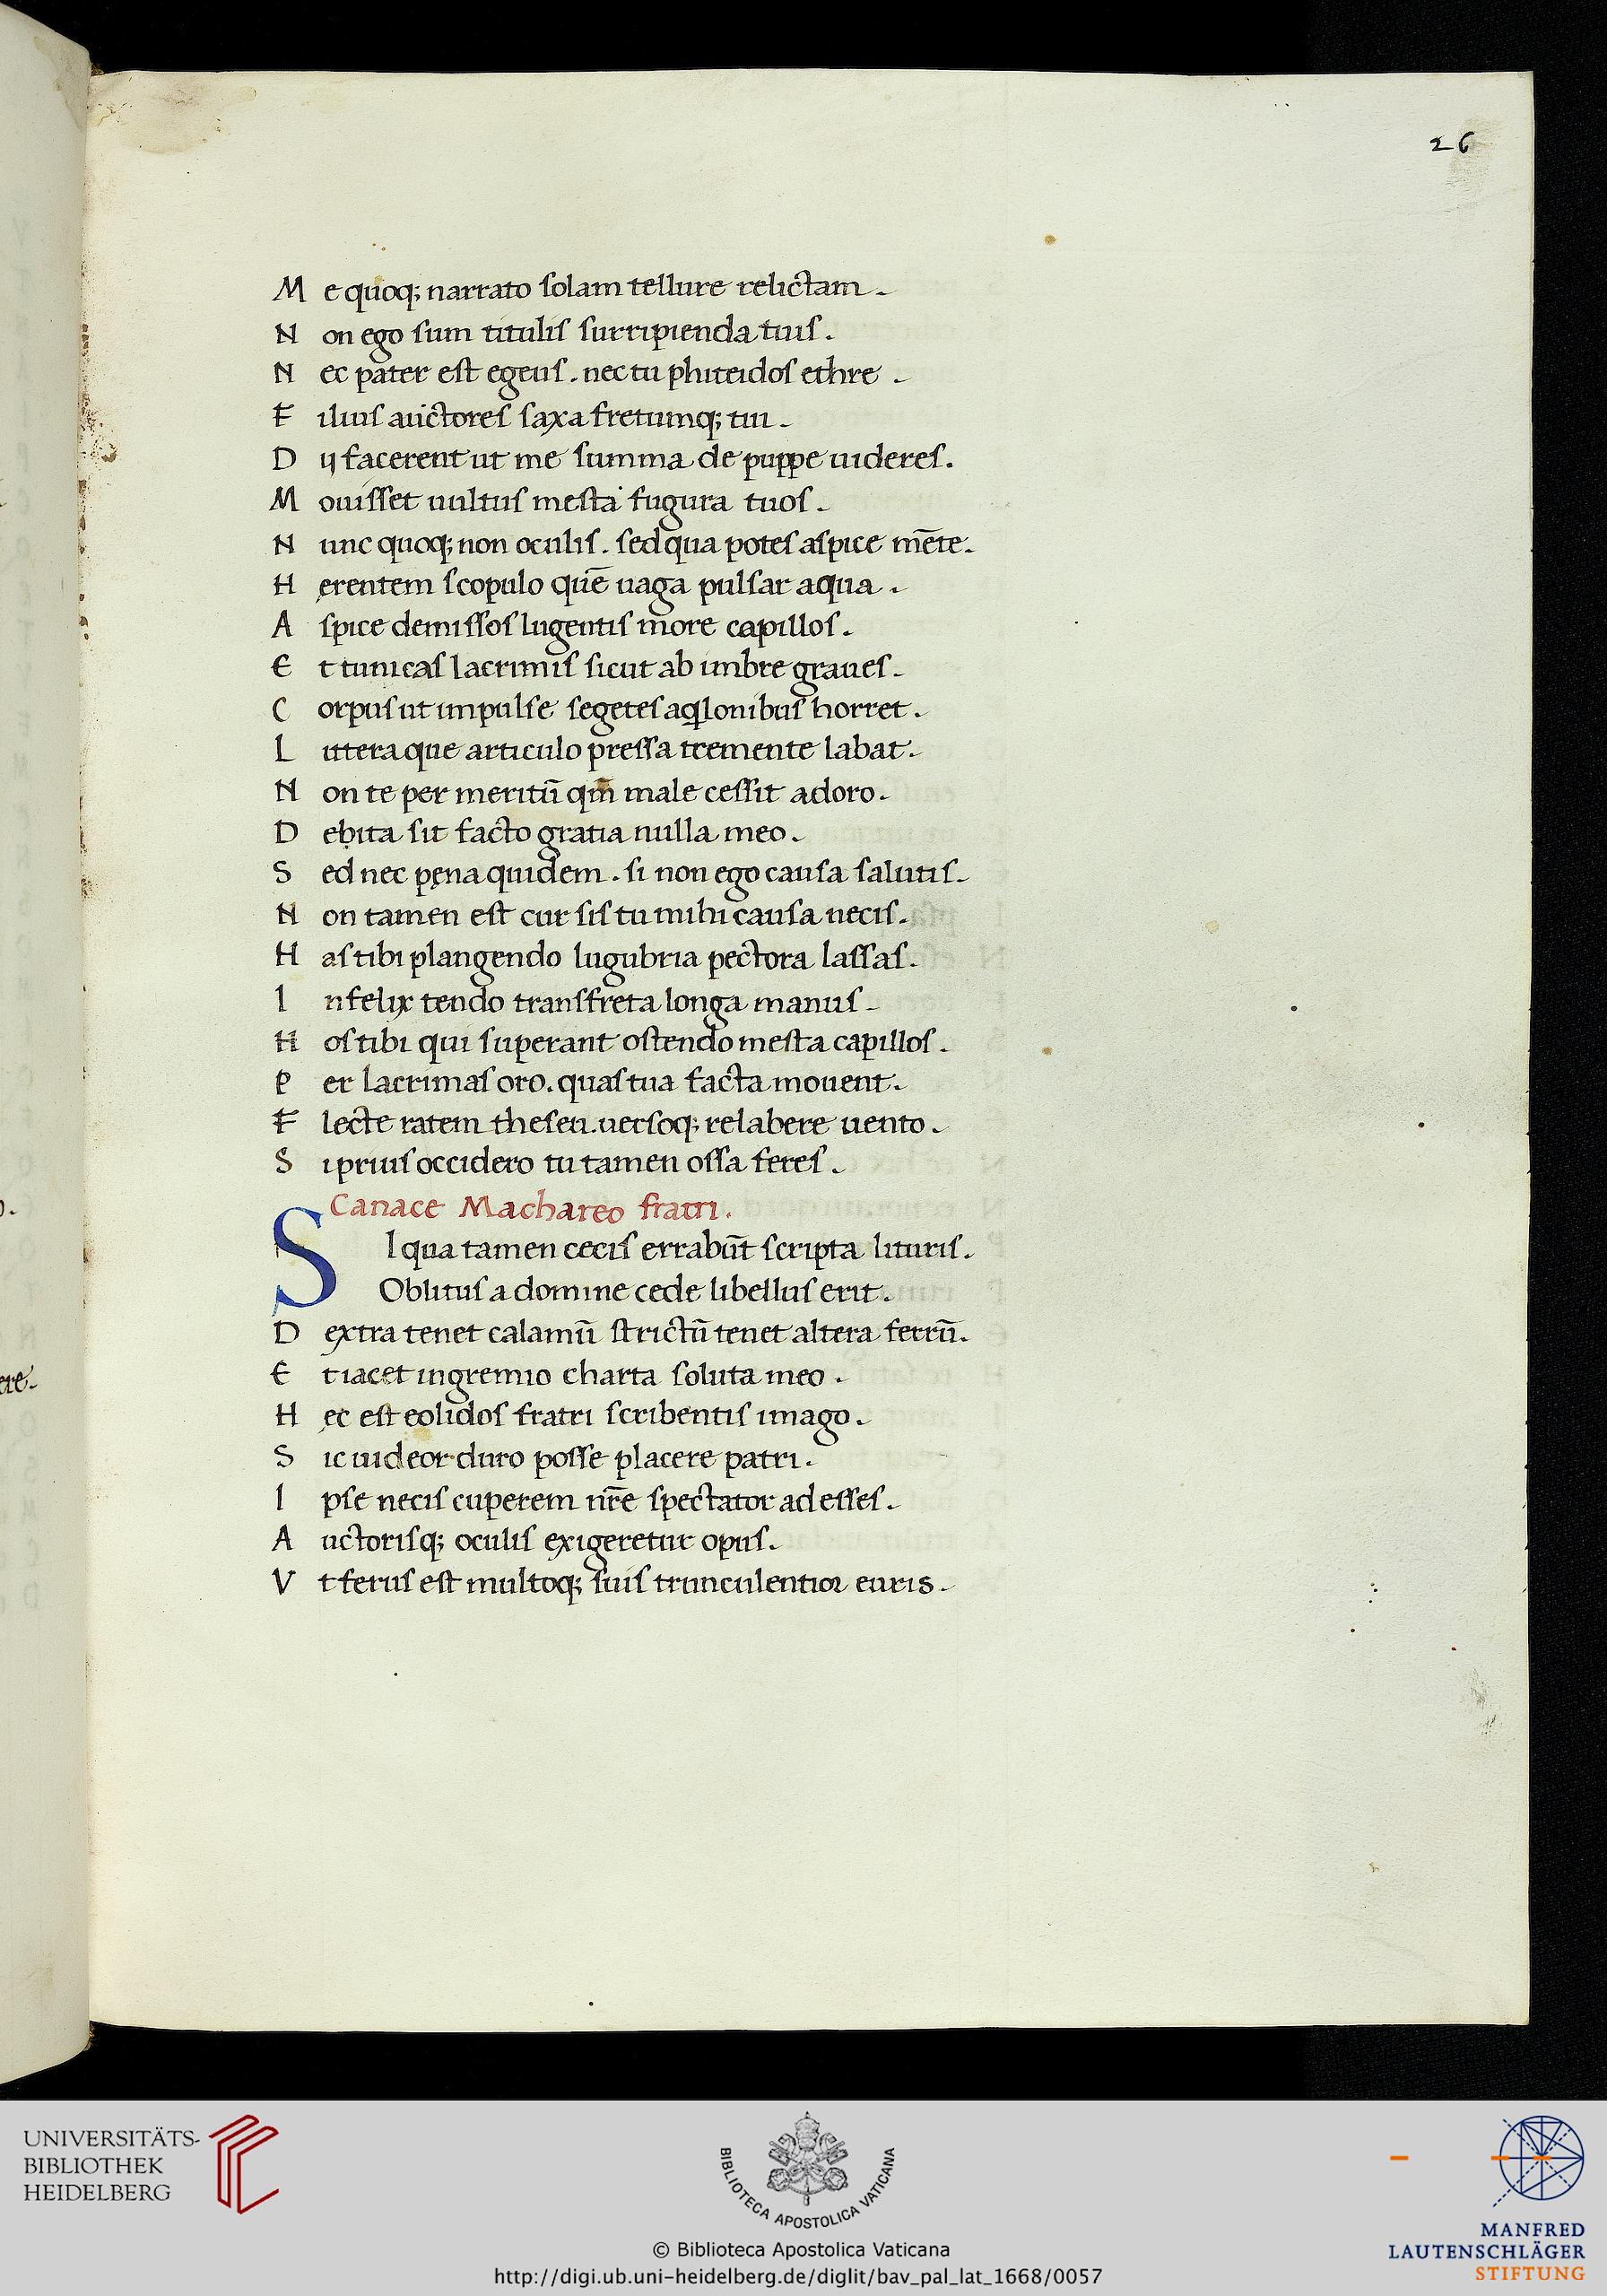 26
M e quoq; narrato solam tellure relictam.
N on ego sum titulis surripienda tuis.
N ec pater est egeus. nec tu phiteidos ethre.
F ilius auctores saxa fretumq; tui.
D ij facerent ut me summa de puppe uideres.
M ouisset uultus mesta fugura tuos.
N unc quoq; non oculis. sed qua potes aspice mēte.
H erentem scopulo quē uaga pulsar aqua.
A spice demissos lugentis more capillos.
E t tunicas lacrimis sicut ab imbre graues.
C orpus ut impulse segetes aqlonibus horret.
L itteraque articulo pressa tremente labat.
N on te per meritū qm̄ male cessit adoro.
D ebita sit facto gratia nulla meo.
S ed nec pęna quidem. si non ego causa salutis.
N on tamen est cur sis tu mihi causa necis.
H as tibi plangendo lugubria pectora lassas.
I nfelix tendo trans freta longa manus.
H os tibi qui superant ostendo mesta capillos.
P er lacrimas oro. quas tua facta mouent.
F lecte ratem theseu. uersoq; relabere uento.
S i prius occidero tu tamen ossa feres.
Canace Machareo fratri.
S I qua tamen cecis errabūt scripta lituris.
Oblitus a domine cede libellus erit.
D extra tenet calamū strictū tenet altera ferrū.
E t iacet in gremio charta soluta meo.
H ęc est eolidos fratri scribentis imago.
S ic uideor duro posse placere patri.
I pse necis cuperem nr̄e spectator adesses.
A uctorisq; oculis exigeretur opus.
V t ferus est multoq; suis trunculentior euris.
UNIVERSITÄTS-
BIBLIOTHEK
HEIDELBERG
BIBLIOTECA APOSTOLICA VATICANA
MANFRED
LAUTENSCHLÄGER
STIFTUNG
© Biblioteca Apostolica Vaticana
http://digi.ub.uni-heidelberg.de/diglit/bav_pal_lat_1668/0057